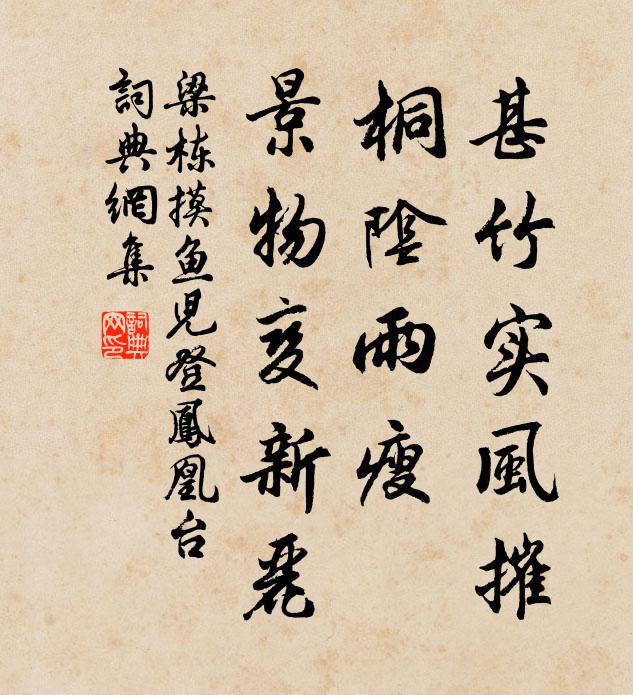 甚竹实風摧
桐陰雨瘦
景物变新麗
梁栋摸鱼児登鳳凰台
詞典網集
詞典網印